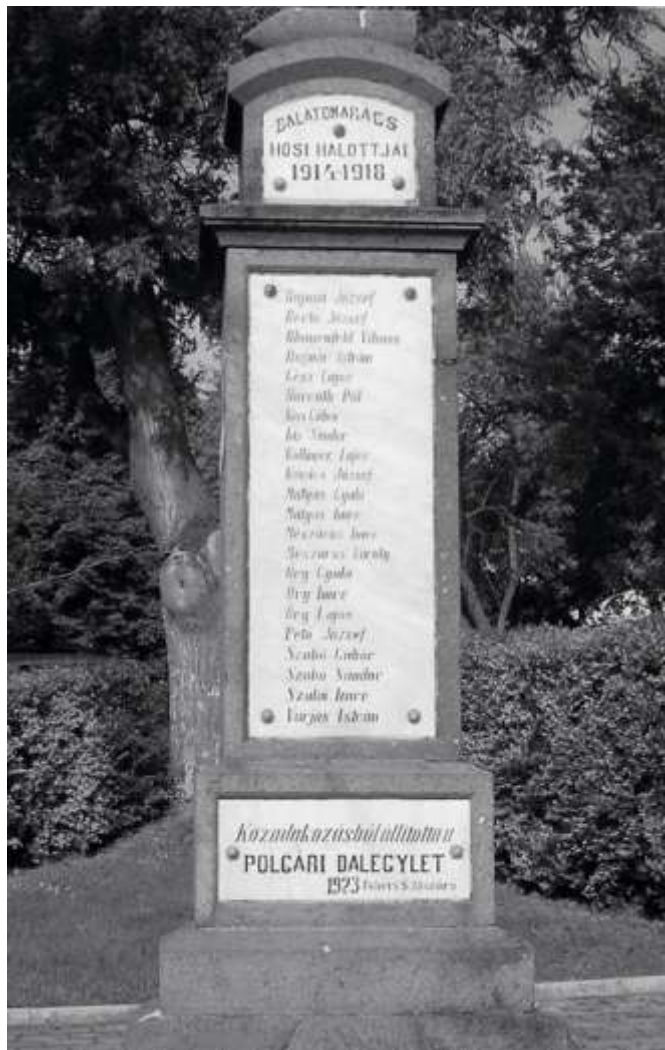 BALATONARÁCS
HŐSI HALOTTJAI
1914-1918
József
Bertó József
Blumenfeld Vilmos
Bognár István
Lajos
Horváth Pál
Kiss Gábor
Sándor
Kellner Lajos
Kovács József
Matyas Gyula
Matyas Imre
Meszáros Imre
Meszáros Károly
Öry Gyula
Öry Imre
Öry Lajos
Pető József
Szabó Gábor
Szabó Sándor
Imre
Varjas István
Közadakozásból állította a
POLGÁRI DALEGYLET
1923